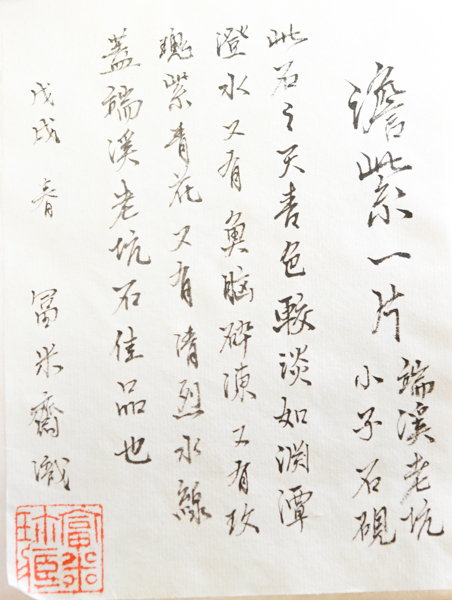 澹紫一片
端溪老坑
小子石硯
此石之天青色較淡如淵潭
澄水又有魚脑碎凍又有玫
瑰紫青花又有清烈水線
蓋端溪老坑石佳品也
戊戌 春 冨米齋識